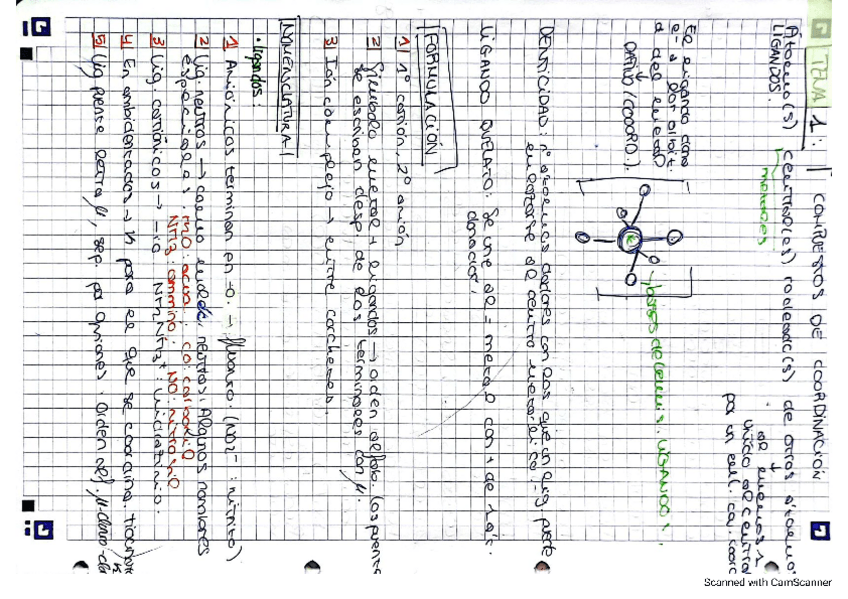 TEMA 1: COMPUESTOS DE COORDINACIÓN
Átomo(s) central(es) rodeado(s) de otros átomos
LIGANDOS.
metales
al menos 1
unido al central
por un enl. cov. coord
El ligando dona
e- a los orbit.
d del metal
DATIVO/(COORD.).
bases de Lewis: LIGANDOS.
DENTICIDAD: nº átomos dadores con los que un lig. puede
enlazarse al centro metálico.
LIGANDO QUELATO: Se une al = metal con + de 1 át.
donador.
FORMULACIÓN
1) 1º catión, 2º anión
2 Símbolo metal + ligandos → orden alfab. Los puente
se escriben desp. de los terminales con μ.
3 Ión complejo → entre corchetes.
NOMENCLATURA
· Ligandos:
1 Aniónicos terminan en -o. → fluoro. (NO2- : nitrito)
2 Lig. neutros → como moléc. neutras. Algunos nombres
especiales. H2O: acua. CO: carbonilo
NH3: ammino. NO: nitrosilo
3 Lig. catiónicos → -io NH2NH3+: hidrazinio.
4 En ambidentados → k para el que se coordina.
5 Lig puente letra μ, sep. por guiones. orden alf.
Scanned with CamScanner